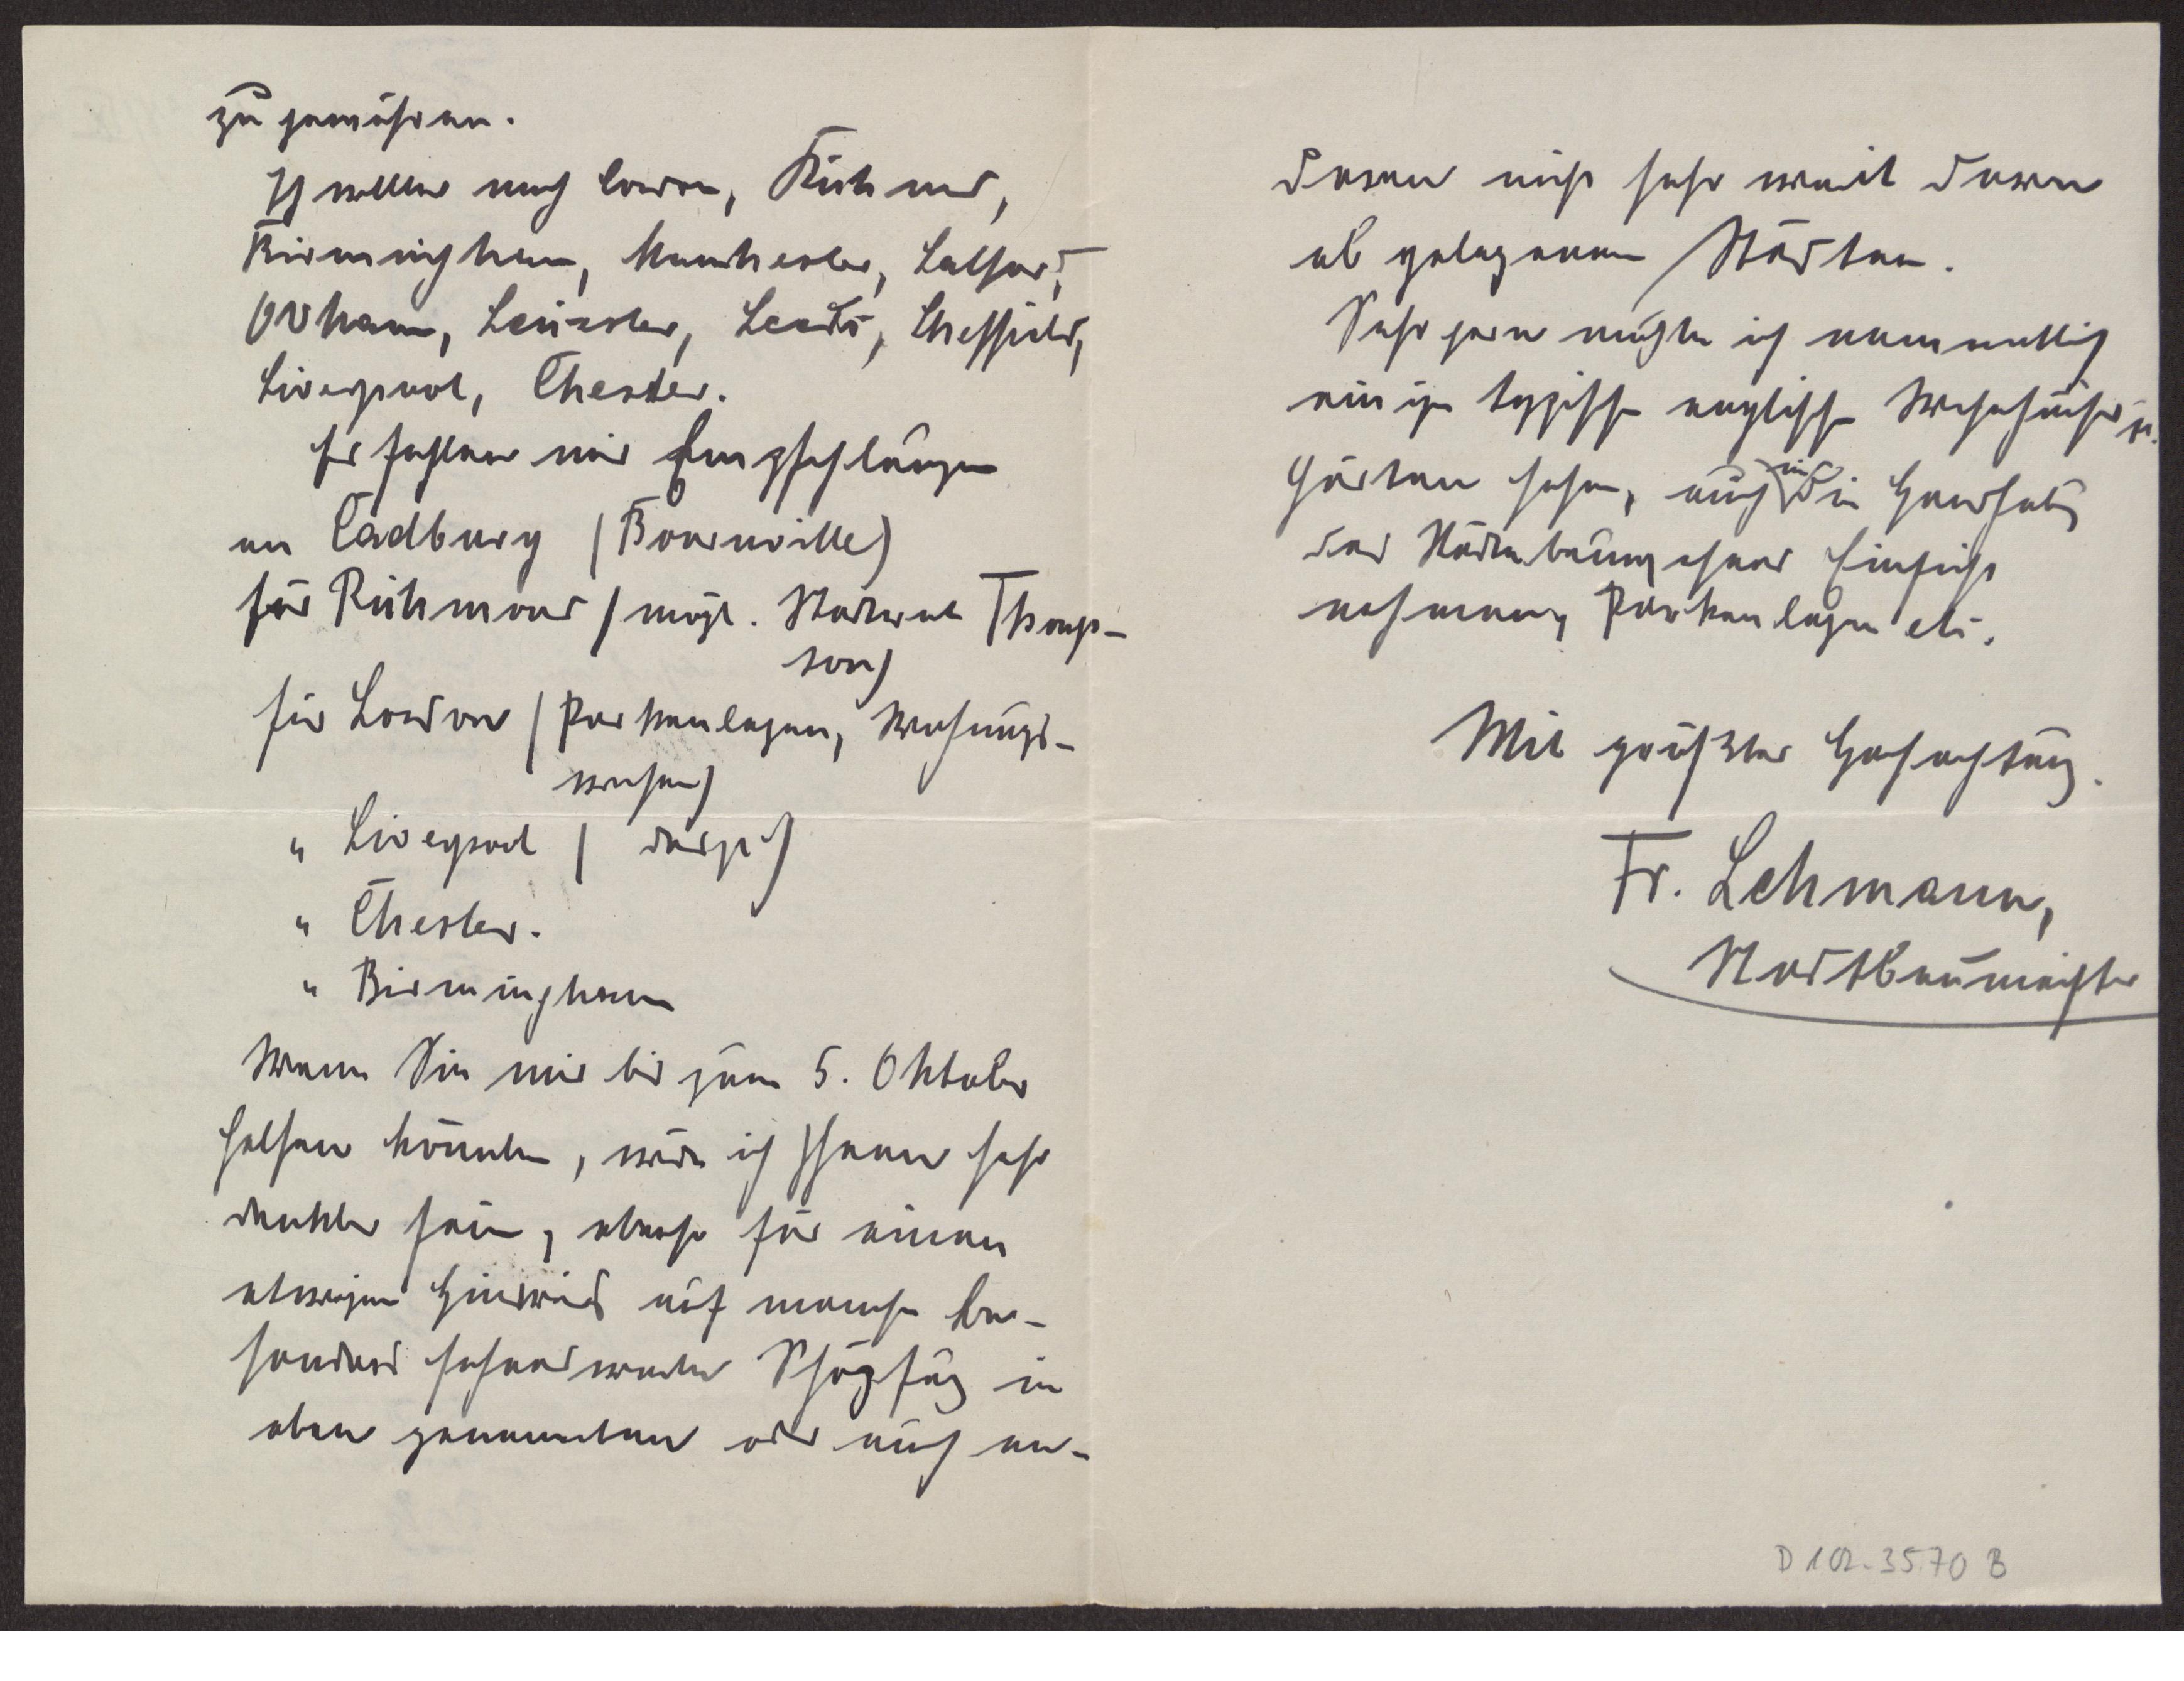 zu gewähren.
Ich wollte nach London, Richmond,
Birmingham, Manchester, Salford,
Oldham, Leicester, Leeds, Sheffield,
Liverpool, Chester.
Es fehlen mir Empfehlungen
an Cadbury (Bournville)
für Richmond (mögl. Stadtrat Thomp-
son)
für London (Parkanlagen, Wohnungs-
wesen)
" Liverpool ( desgl.)
" Chester.
" Birmingham
Wenn Sie mir bis zum 5. Oktober
helfen könnten, würde ich Ihnen sehr
dankbar sein, ebenso für einen
etwaigen Hinweis auf manche be-
sonders sehenswerte Schöpfung in
oben genannten oder auch an-
deren nicht sehr weit davon
ab gelegenen Städten.
Sehr gern möchte ich namentlich
einige typische englische Wohnhäuser u.
Gärten sehen, auch in die
des Städtebauers Einsicht
nehmen, Parkanlagen etc.
Mit größter Hochachtung.
Fr. Lehmann,
Stadtbaumeister
D 102-3570 B